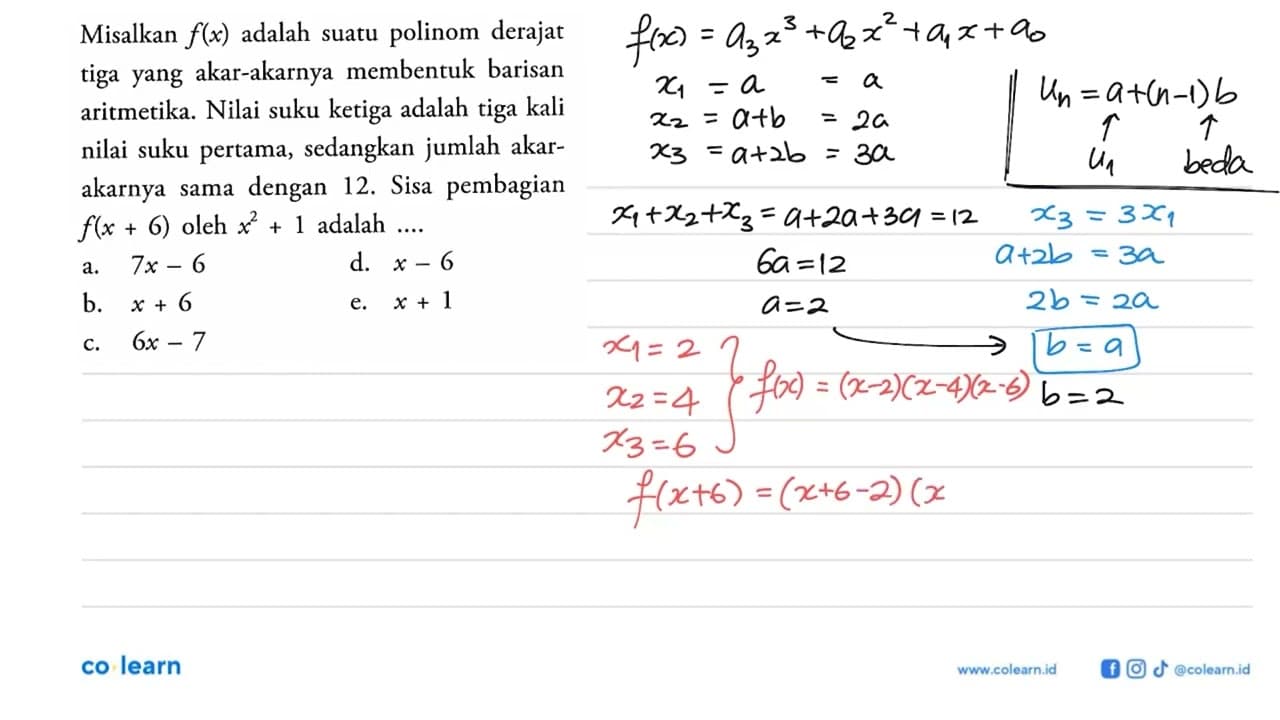 Misalkan f(x) adalah suatu polinom derajat
tiga yang akar-akarnya membentuk barisan
aritmetika. Nilai suku ketiga adalah tiga kali
nilai suku pertama, sedangkan jumlah akar-
akarnya sama dengan 12. Sisa pembagian
f(x + 6) oleh x² + 1 adalah ....
a. 7x – 6
d. x – 6
b. x + 6
e. x + 1
c. 6x – 7
f(x) = a₃x³ + a₂x² + a₁x + a₀
x₁ = a = a
x₂ = a+b = 2a
x₃ = a+2b = 3a
Uₙ = a+(n-1)b
↑ ↑
U₁ beda
x₁+x₂+x₃ = a+2a+3a = 12
6a = 12
a = 2
x₃ = 3x₁
a+2b = 3a
2b = 2a
b = a
b = 2
x₁ = 2
x₂ = 4
x₃ = 6
f(x) = (x-2)(x-4)(x-6)
f(x+6) = (x+6-2)(x
co learn
www.colearn.id
@colearn.id